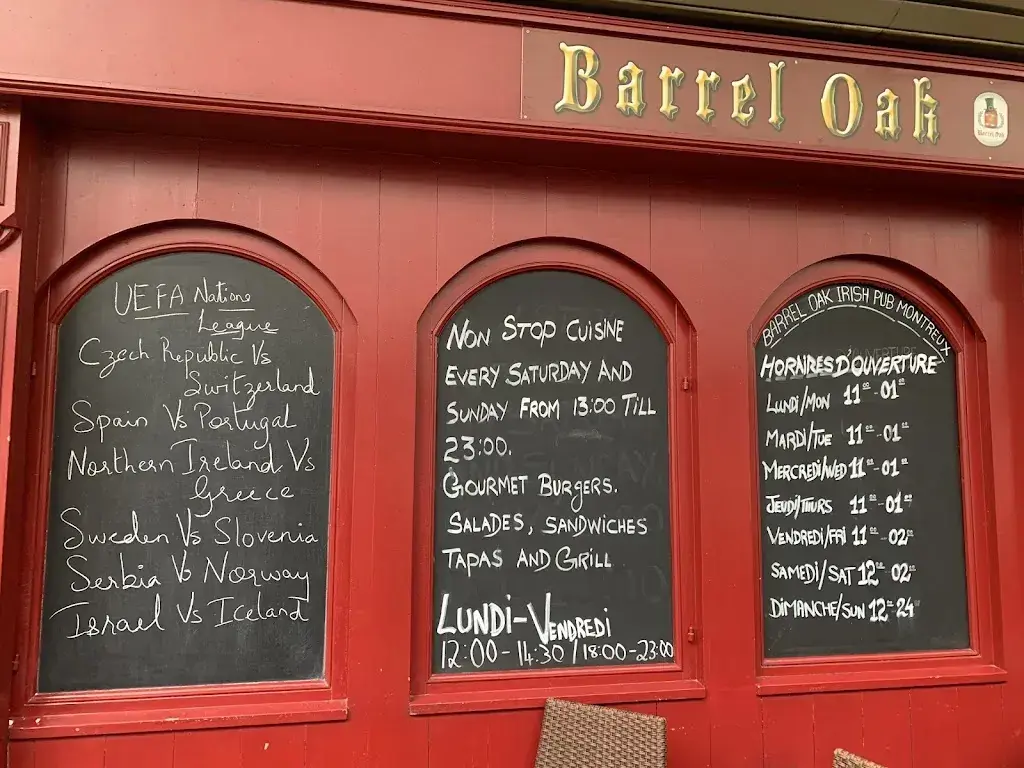 Barrel Oak
UEFA Nations
League
Czech Republic Vs
Switzerland
Spain Vs Portugal
Northern Ireland Vs
Greece
Sweden Vs Slovenia
Serbia Vs Norway
Israel Vs Iceland
NON STOP CUISINE
EVERY SATURDAY AND
SUNDAY FROM 13:00 TILL
23:00.
GOURMET BURGERS.
SALADES, SANDWICHES
TAPAS AND GRILL
LUNDI-VENDREDI
12:00-14:30/18:00-23:00
BARREL OAK IRISH PUB MONTREUX
HORAIRES D'OUVERTURE
LUNDI/MON 11°°-01°°
MARDI/TUE 11°°-01°°
MERCREDI/WED 11°°-01°°
JEUDI/THURS 11°°-01°°
VENDREDI/FRI 11°°-02°°
SAMEDI/SAT 12°°-02°°
DIMANCHE/SUN 12°°-24°°